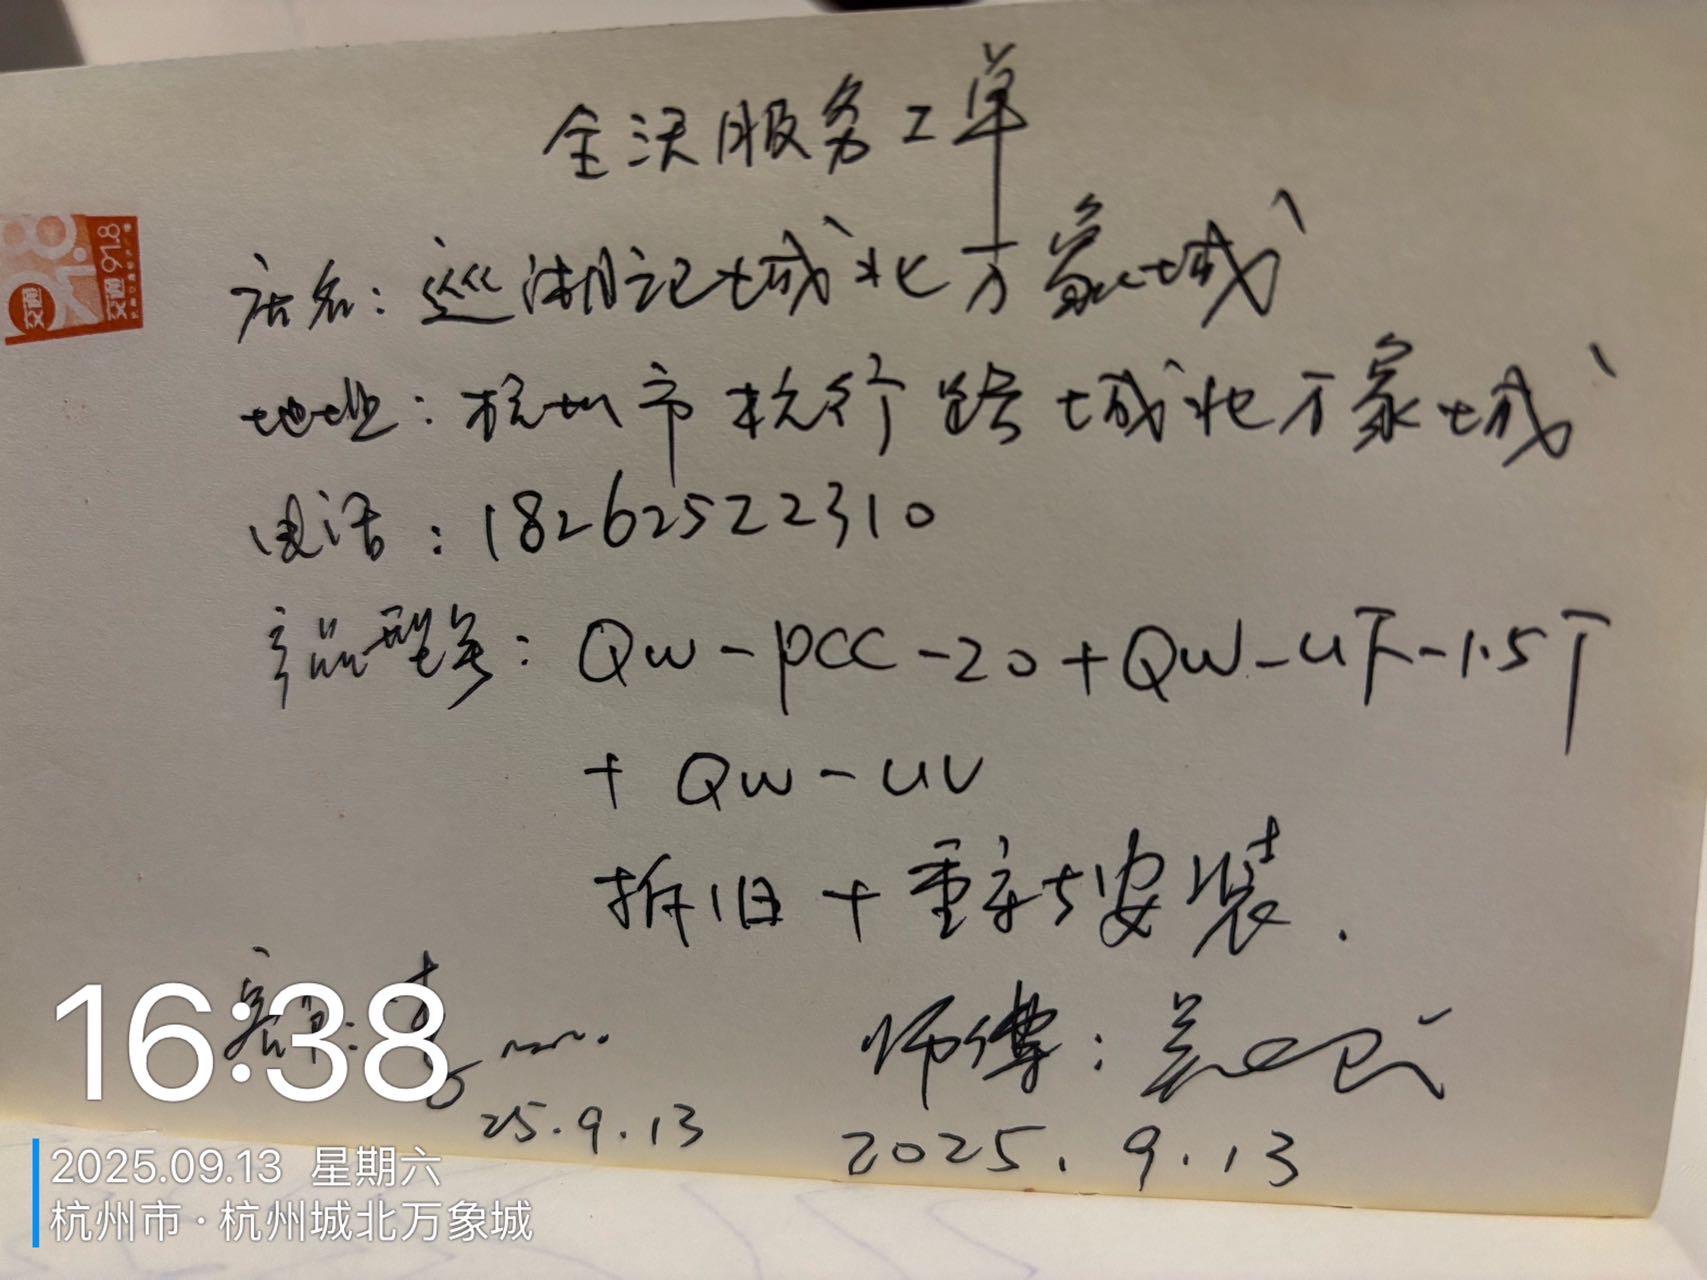 全沃服务工单
店名：巡湖记城北万象城
地址：杭州市杭行路城北万象城
电话：18262522310
产品型号：QW-PCC-20+QW-UF-1.5T
+QW-UV
拆旧+重新安装.
客户：
25.9.13
师傅：
2025.9.13
91.8
交通
交通91.8
16:38
2025.09.13 星期六
杭州市·杭州城北万象城